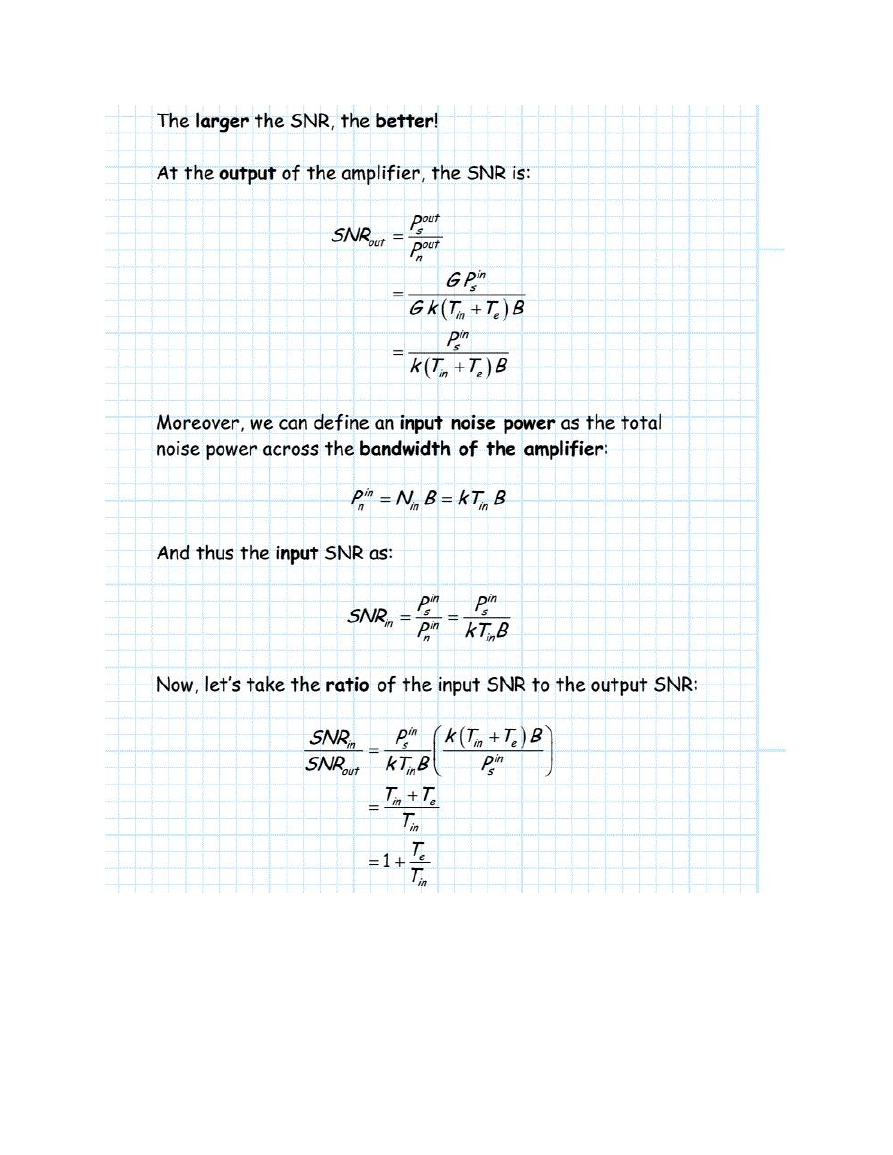 The larger the SNR, the better!
At the output of the amplifier, the SNR is:
SNR_out = P_s^out / P_n^out
= G P_s^in / G k (T_in + T_e) B
= P_s^in / k (T_in + T_e) B
Moreover, we can define an input noise power as the total
noise power across the bandwidth of the amplifier:
P_n^in = N_in B = kT_in B
And thus the input SNR as:
SNR_in = P_s^in / P_n^in = P_s^in / kT_in B
Now, let's take the ratio of the input SNR to the output SNR:
SNR_in / SNR_out = P_s^in / kT_in B ( k (T_in + T_e) B / P_s^in )
= T_in + T_e / T_in
= 1 + T_e / T_in